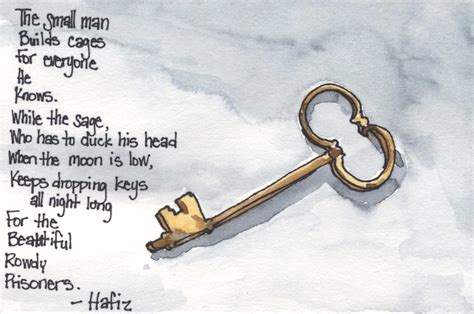 The small man
Builds cages
For everyone
He
Knows.
While the sage,
Who has to duck his head
When the moon is low,
Keeps dropping keys
all night long
For the
Beautiful
Rowdy
Prisoners.
- Hafiz